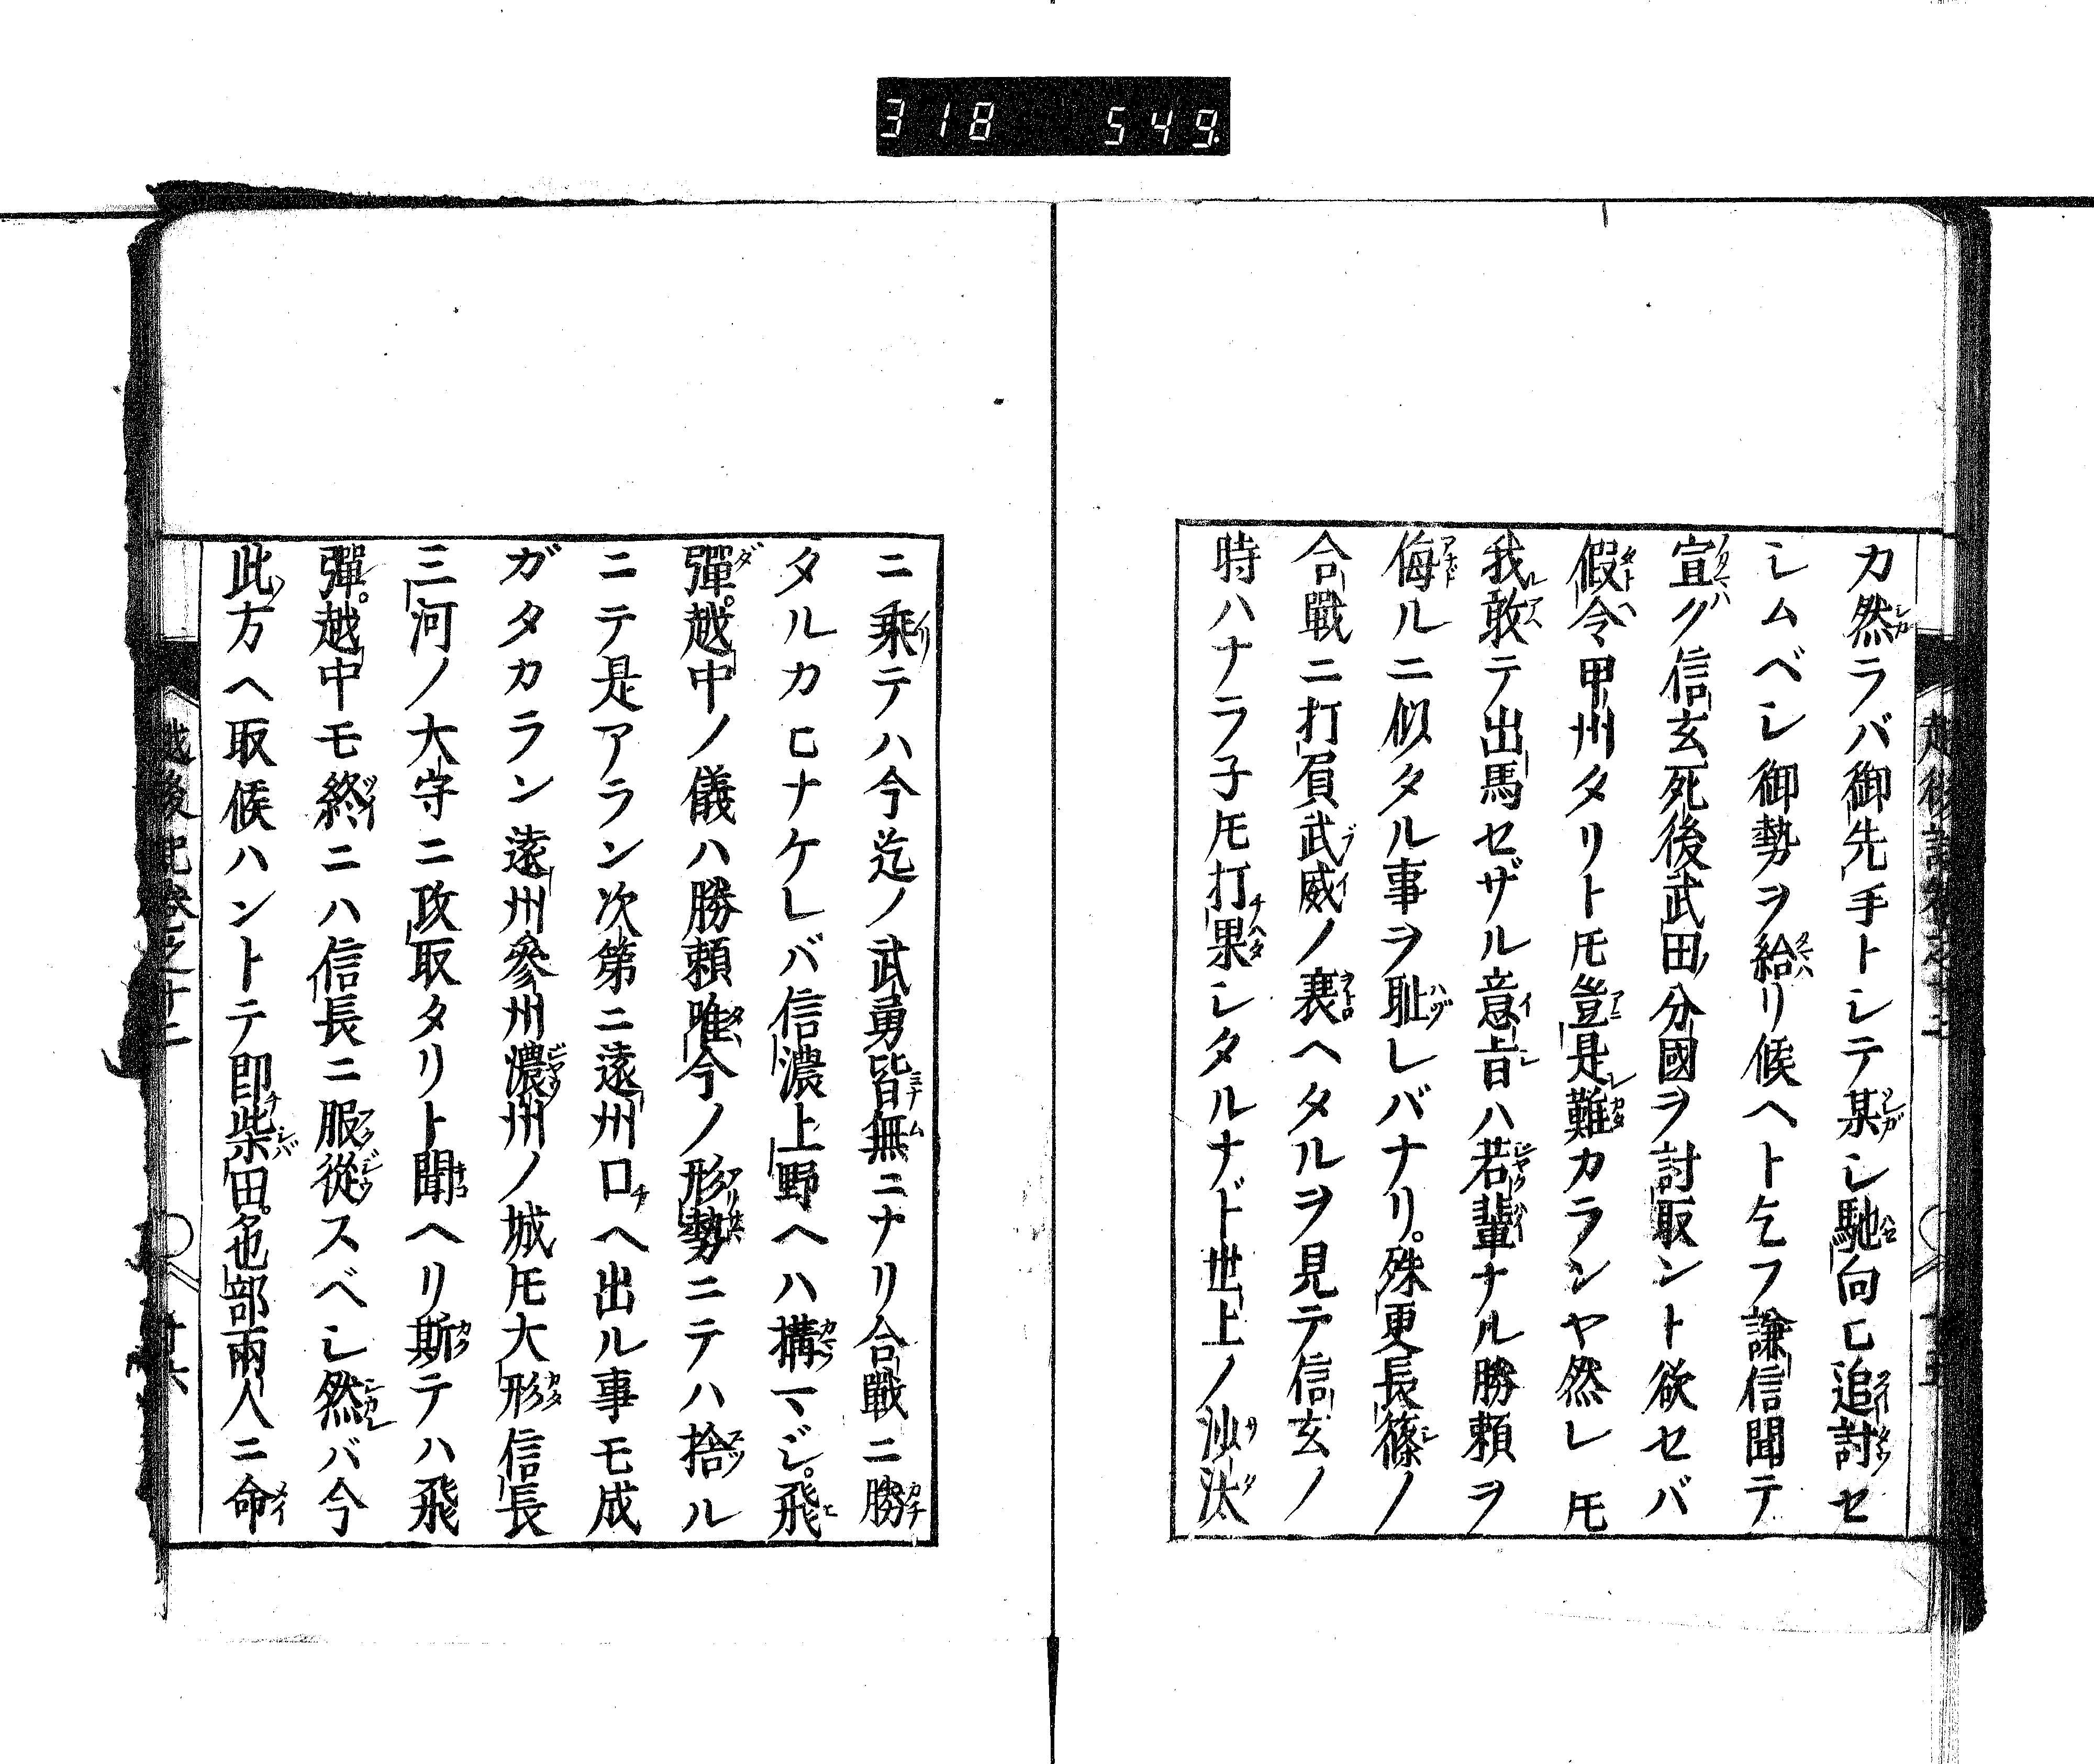 318 549
カ然ラバ御先手トシテ某シ馳向ヒ追討セ
シムベシ御勢ヲ給リ候ヘト乞フ謙信聞テ
宣ク信玄死後武田分國ヲ討取ント欲セバ
假令甲州タリトモ豈是難カランヤ然レモ
我敢テ出馬セザル意旨ハ若輩ナル勝頼ヲ
侮ルニ似タル事ヲ耻レバナリ。殊更長篠ノ
合戰ニ打負武威ノ衰ヘタルヲ見テ信玄ノ
時ハナラ子𪜈打果シタルナド世上ノ沙汰
ニ乗テハ今迄ノ武勇皆無ニナリ合戰ニ勝
タルカヒナケレバ信濃上野ヘハ構マジ。飛
彈。越中ノ儀ハ勝頼唯今ノ形勢ニテハ捨ル
ニテ是アラン次第ニ遠州口ヘ出ル事モ成
ガタカラン遠州參州濃州ノ城𪜈大形信長
三河ノ大守ニ攻取タリト聞ヘリ斯テハ飛
彈。越中モ終ニハ信長ニ服從スベシ然バ今
此方ヘ取候ハントテ即柴田。色部兩人ニ命
越後記卷之十二